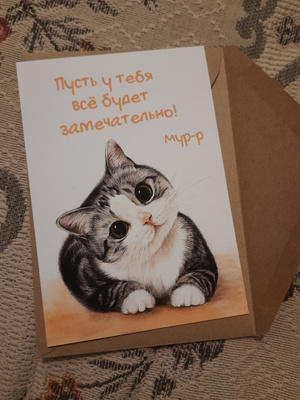 Пусть у тебя
всё будет
замечательно!
мур-р